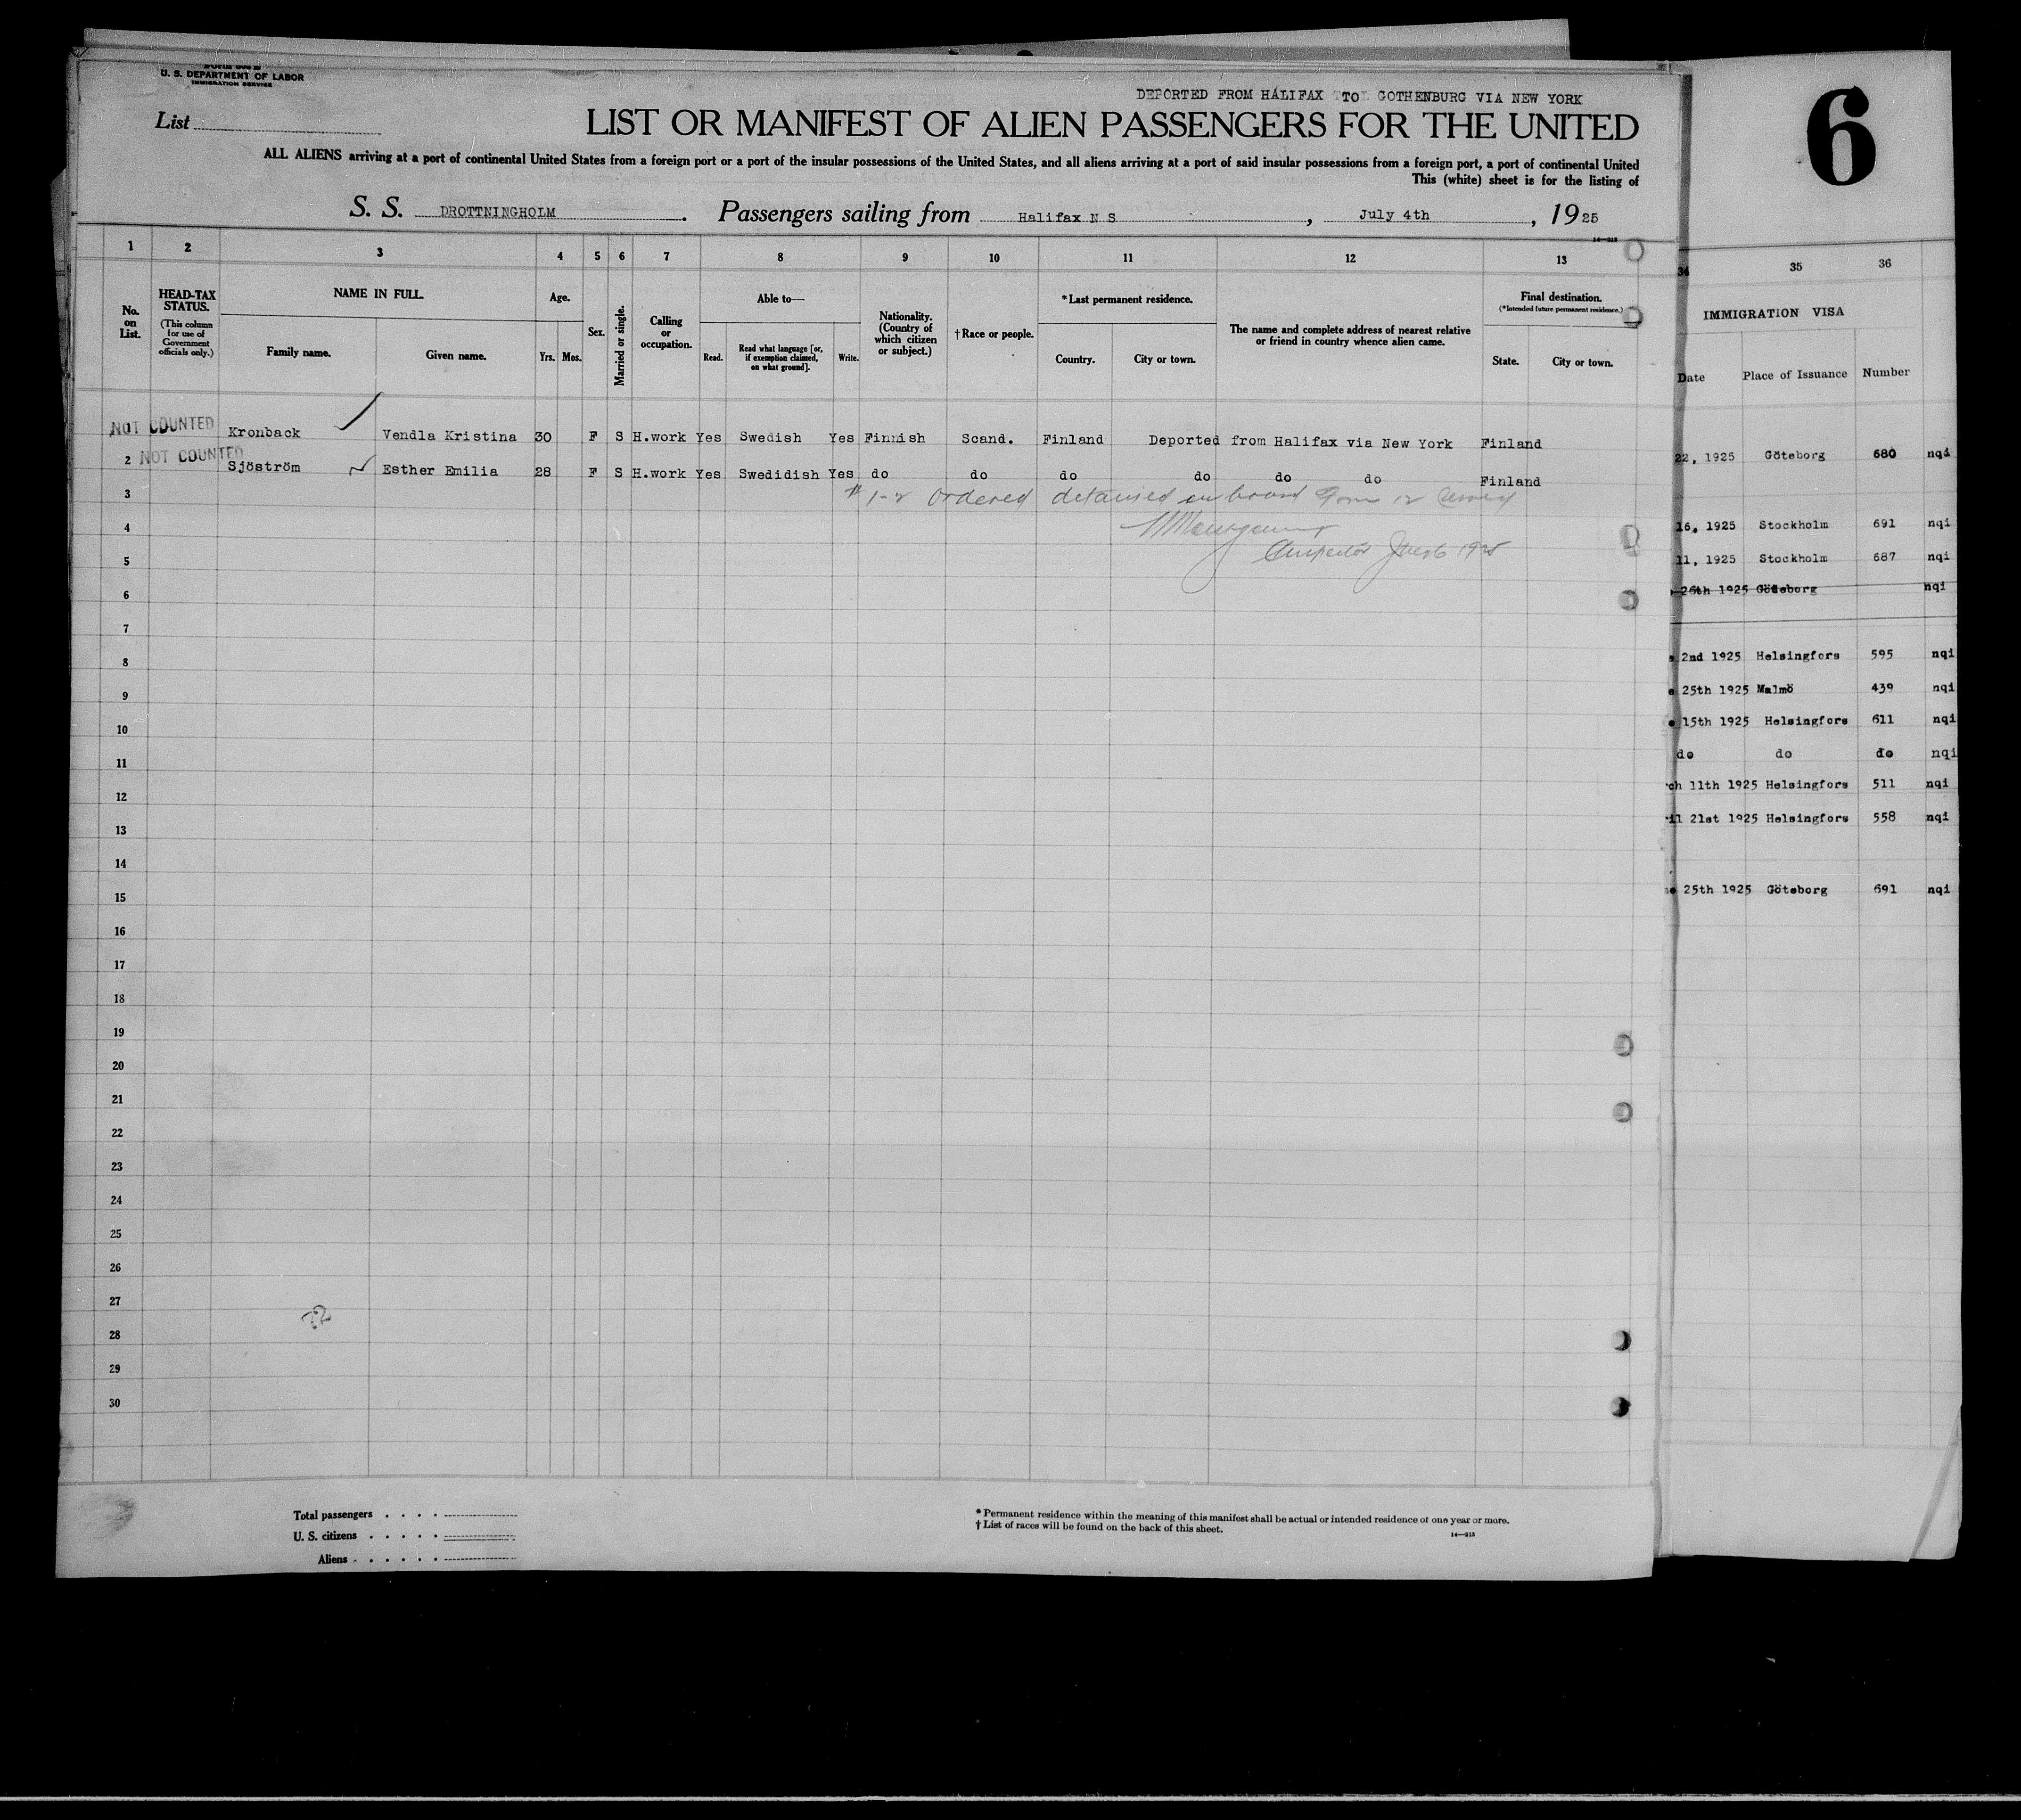 U. S. DEPARTMENT OF LABOR
IMMIGRATION SERVICE
DEPORTED FROM HALIFAX TO GOTHENBURG VIA NEW YORK
List
LIST OR MANIFEST OF ALIEN PASSENGERS FOR THE UNITED
ALL ALIENS arriving at a port of continental United States from a foreign port or a port of the insular possessions of the United States, and all aliens arriving at a port of said insular possessions from a foreign port, a port of continental United
This (white) sheet is for the listing of
S. S. DROTTNINGHOLM. Passengers sailing from Halifax N S, July 4th, 1925
14—213
6
1 2 3 4 5 6 7 8 9 10 11 12 13
34 35 36
No. on List.
HEAD-TAX STATUS. (This column for use of Government officials only.)
NAME IN FULL.
Family name. Given name.
Age.
Yrs. Mos.
Sex.
Married or single.
Calling or occupation.
Able to—
Read. Read what language [or, if exemption claimed, on what ground]. Write.
Nationality. (Country of which citizen or subject.)
†Race or people.
*Last permanent residence.
Country. City or town.
The name and complete address of nearest relative or friend in country whence alien came.
Final destination.
(*Intended future permanent residence.)
State. City or town.
IMMIGRATION VISA
Date Place of Issuance Number
NOT COUNTED Kronback Vendla Kristina 30 F S H.work Yes Swedish Yes Finnish Scand. Finland Deported from Halifax via New York Finland
2 NOT COUNTED Sjöström Esther Emilia 28 F S H.work Yes Swedidish Yes do do do do do do Finland
3 #1-2 Ordered detained on board
4
Inspector 1925
5
6
7
8
9
10
11
12
13
14
15
16
17
18
19
20
21
22
23
24
25
26
27
28
29
30
22, 1925 Göteborg 680 nqi
16, 1925 Stockholm 691 nqi
11, 1925 Stockholm 687 nqi
26th 1925 Göteborg nqi
2nd 1925 Helsingfors 595 nqi
25th 1925 Malmö 439 nqi
15th 1925 Helsingfors 611 nqi
do do do nqi
ch 11th 1925 Helsingfors 511 nqi
il 21st 1925 Helsingfors 558 nqi
25th 1925 Göteborg 691 nqi
Total passengers . . . .
U. S. citizens . . . . .
Aliens . . . . . .
* Permanent residence within the meaning of this manifest shall be actual or intended residence of one year or more.
† List of races will be found on the back of this sheet.
14—213